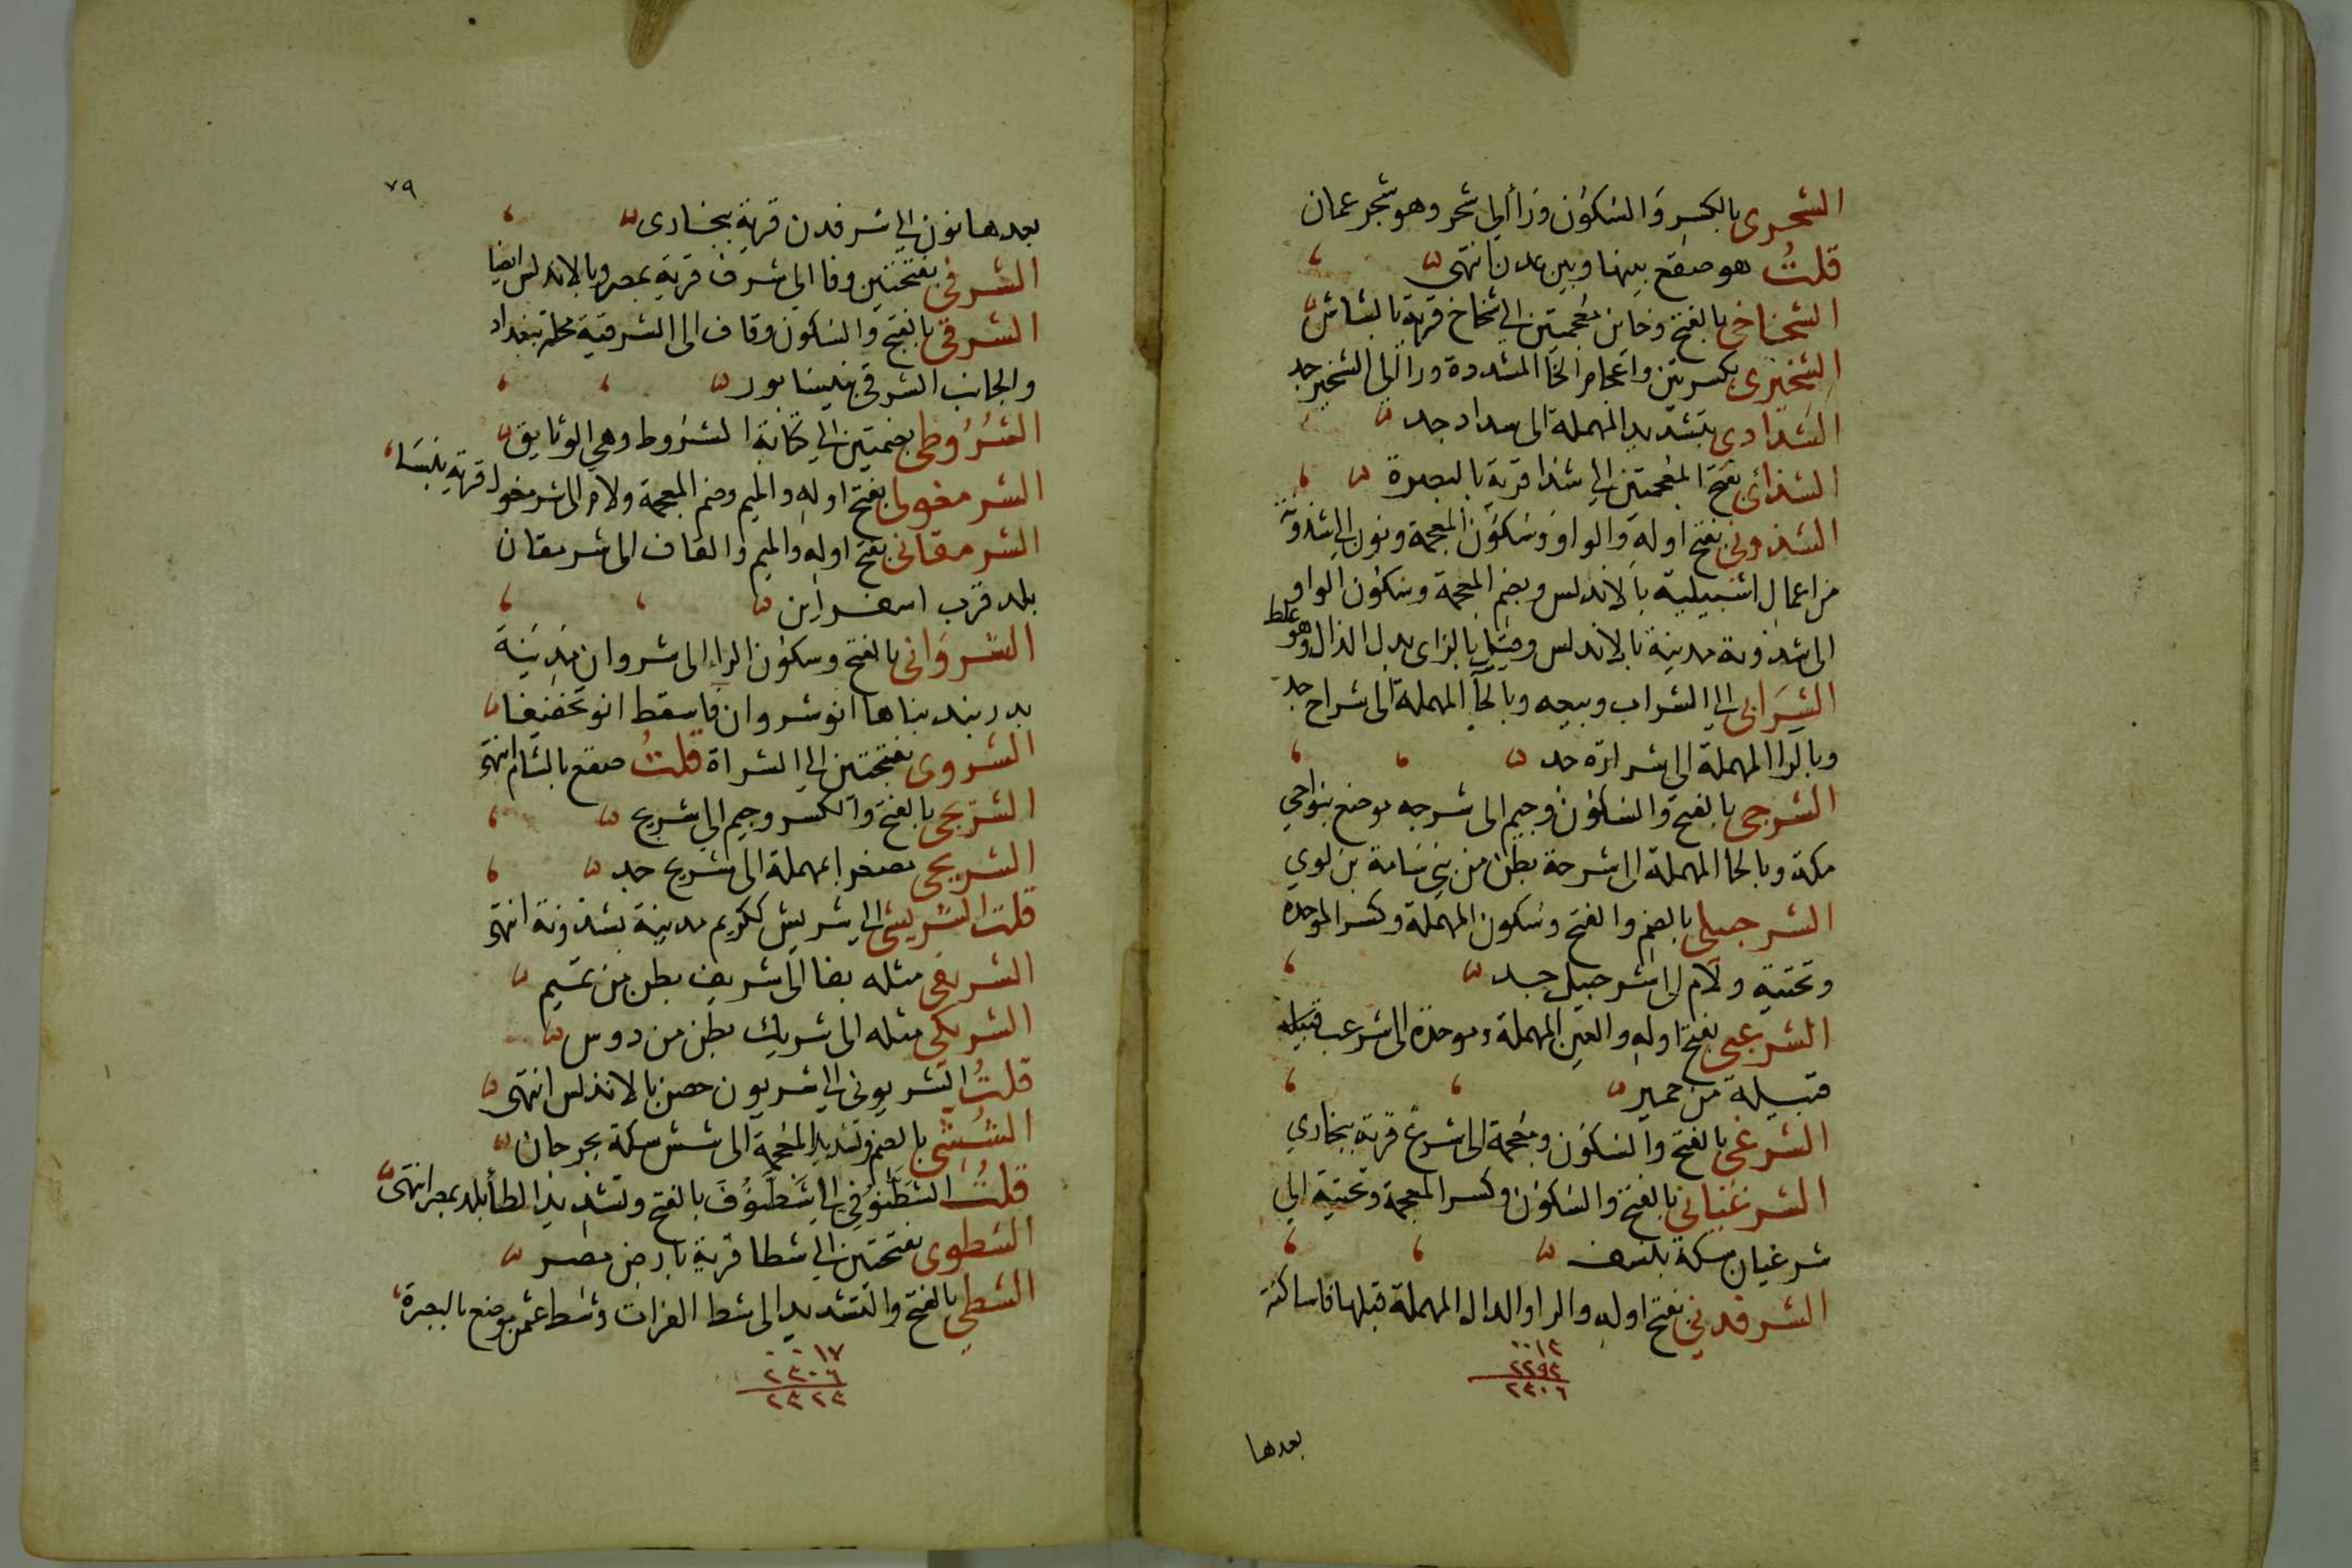 الشحرى بالكسر والسكون وراالى شحر وهو شحر عمان
قلت هو صقع بينها وبين عدن انتهى
الشخاخى بالفتح وخاين معجمتين الى شخاخ قرية بالشاش
الشخيرى بكسرتين واعجام الخا المشددة ورا الى الشخير جد
الشدادى بتشديد المهملة الى سداد جد
الشذائى بفتح المعجمتين الى شذا قرية بالبصرة
الشذونى بفتح اوله والواو وسكون المعجمة ونون الى شذونة
من اعمال اشبيلية بالاندلس وبضم المعجمة وسكون الواو
الى شذونة مدينة بالاندلس وقيل بالزاى بدل الذال وهو غلط
الشرابى الى الشراب وبيعه وبالحآ المهملة الى شراح جد
وبالرا المهملة الى شرارة جد
الشرجى بالفتح والسكون وجيم الى شرجه موضع بنواحي
مكة وبالحا المهملة الى شرحة بطن من بني سامة بن لوي
الشرحبيلى بالضم والفتح وسكون المهملة وكسر الموحدة
وتحتية ولام الى شرحبيل جد
الشرعبى بفتح اوله والعين المهملة وموحدة الى شرعب قبيلة
قبيلة من حمير
الشرغى بالفتح والسكون ومعجمة الى شرغ قرية ببخاري
الشرغيانى بالفتح والسكون وكسر المعجمة وتحتية الى
شرغيان سكة بنسف
الشرفدني بفتح اوله والرا والدال المهملة قبلها فا ساكنة
٠٠١٣
٢٢٩٣
٢٣٠٦
بعدها
٧٩
بعدها نون الى شرفدن قرية ببخارى
الشرفى بفتحتين وفا الى شرف قرية بمصر وبالاندلس ايضا
الشرقى بالفتح والسكون وقاف الى الشرقية محلة ببغداد
والجانب الشرقى بنيسابور
الشروطى بضمتين الى كتابة الشروط وهي الوثايق
الشرمغولى بفتح اوله والميم وضم المعجمة ولام الى شرمغول قرية بنسا
الشرمقانى بفتح اوله والميم والقاف الى شرمقان
بلد قرب اسفراين
الشروانى بالفتح وسكون الراء الى شروان مدينة
بدربند بناها انوشروان فاسقط انو تخفيفا
الشروى بفتحتين الى الشراة قلت صقع بالشام انتهى
الشريجى بالفتح والكسر وجيم الى شريج
الشريحى مصغرا بمهملة الى شريح جد
قلت الشريشى الى شريش ككريم مدينة بشذونة انتهى
الشريفى مثله بفا الى شريف بطن من تميم
الشريكى مثله الى شريك بطن من دوس
قلت الشريونى الى شريون حصن بالاندلس انتهى
الششى بالضم وتشديد المعجمة الى شش سكة بجرجان
قلت الشطنوفي الى شطنوف بالفتح وتشديد الطا بلد بمصر انتهى
الشطوى بفتحتين الى شطا قرية بارض مصر
الشطى بالفتح والتشديد الى شط الفرات وشط عثمن موضع بالبصرة
٠٠١٧
٢٣٠٦
٢٣٢٣